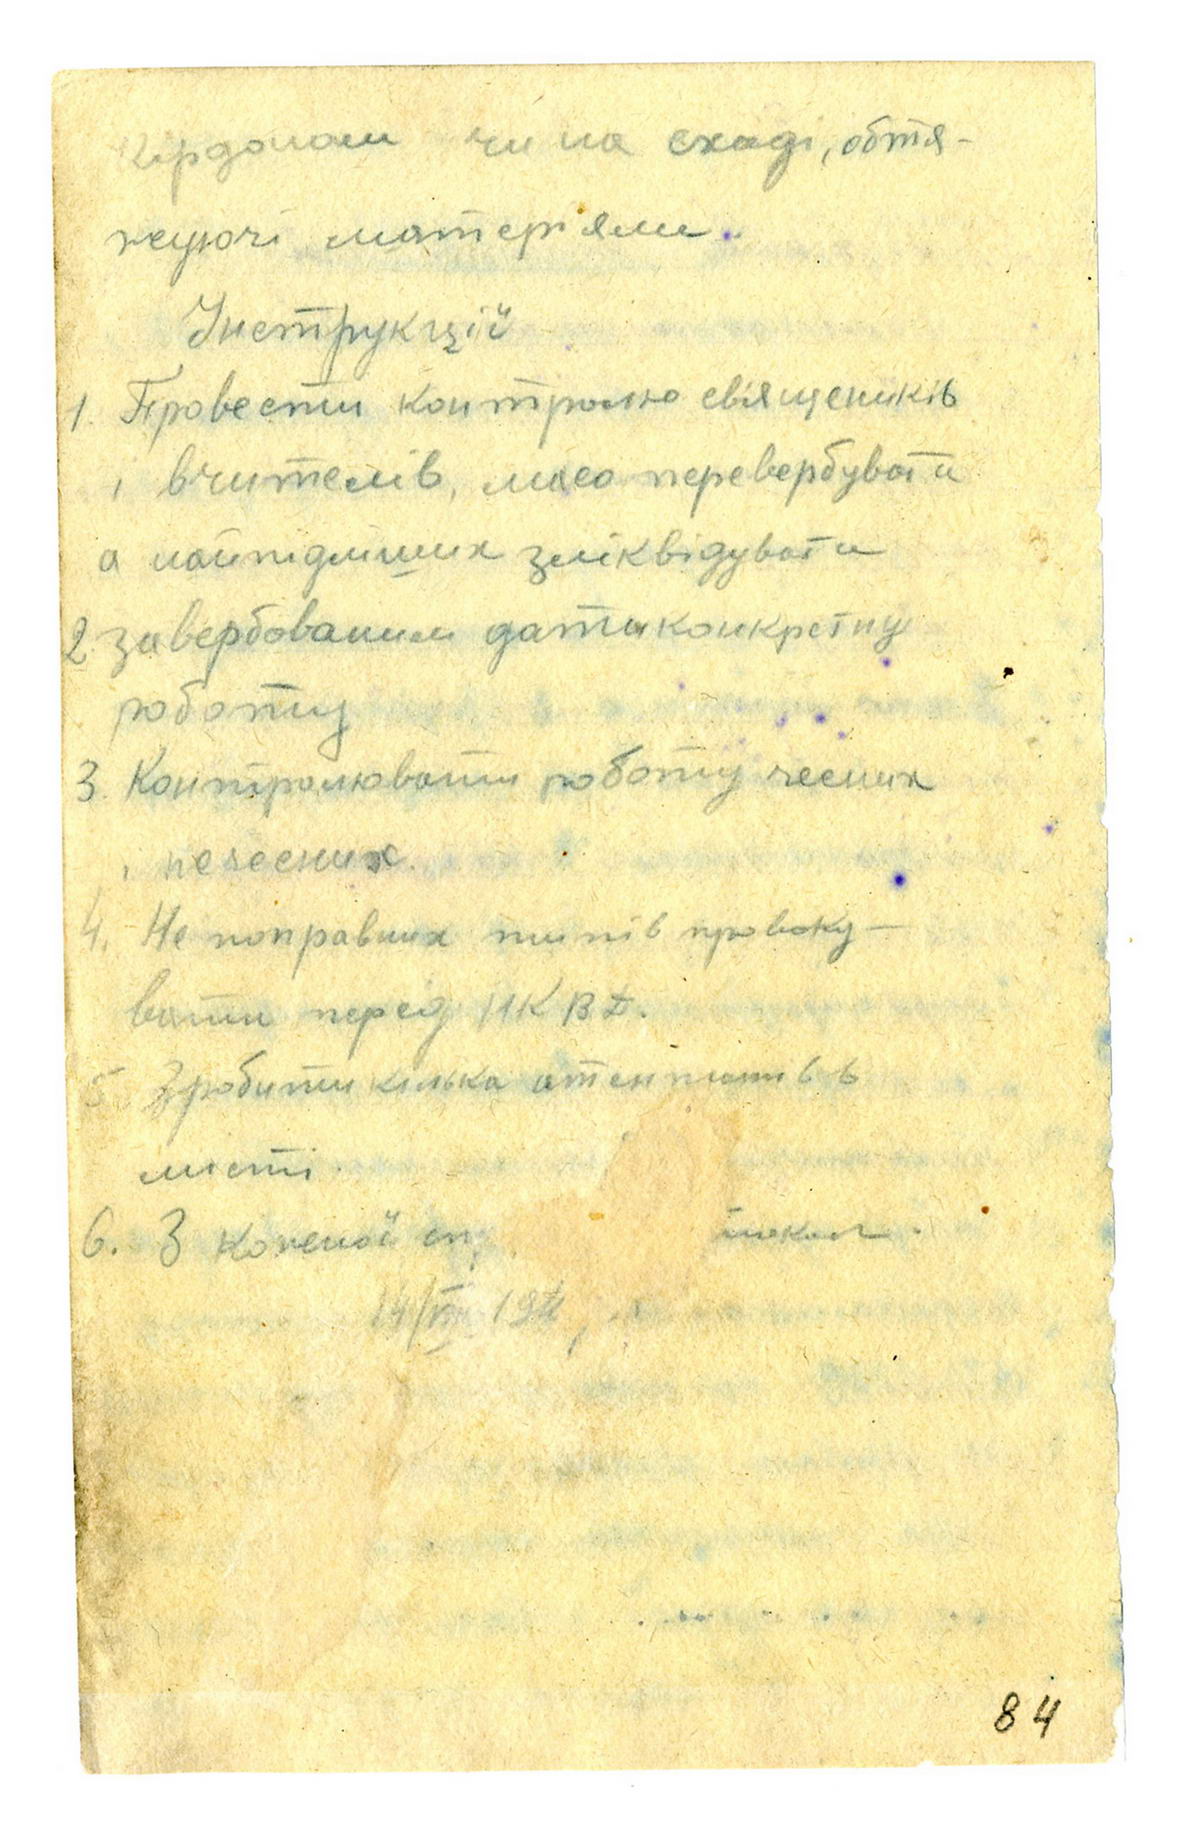 кордоном чи на сході, обтя-
жуючі матеріями.
Інструкції
1. Провести контролю священиків
і вчителів, масо перевербувати
а найпідліших зліквідувати
2 завербованим дати конкретну
роботу
3. Контролювати роботу чесних
і нечесних.
4. Не поправних типів провоку-
вати перед НКВД.
5 Зробити кілька атентатів в
місті
6. З кожної
14/VIII 194
84